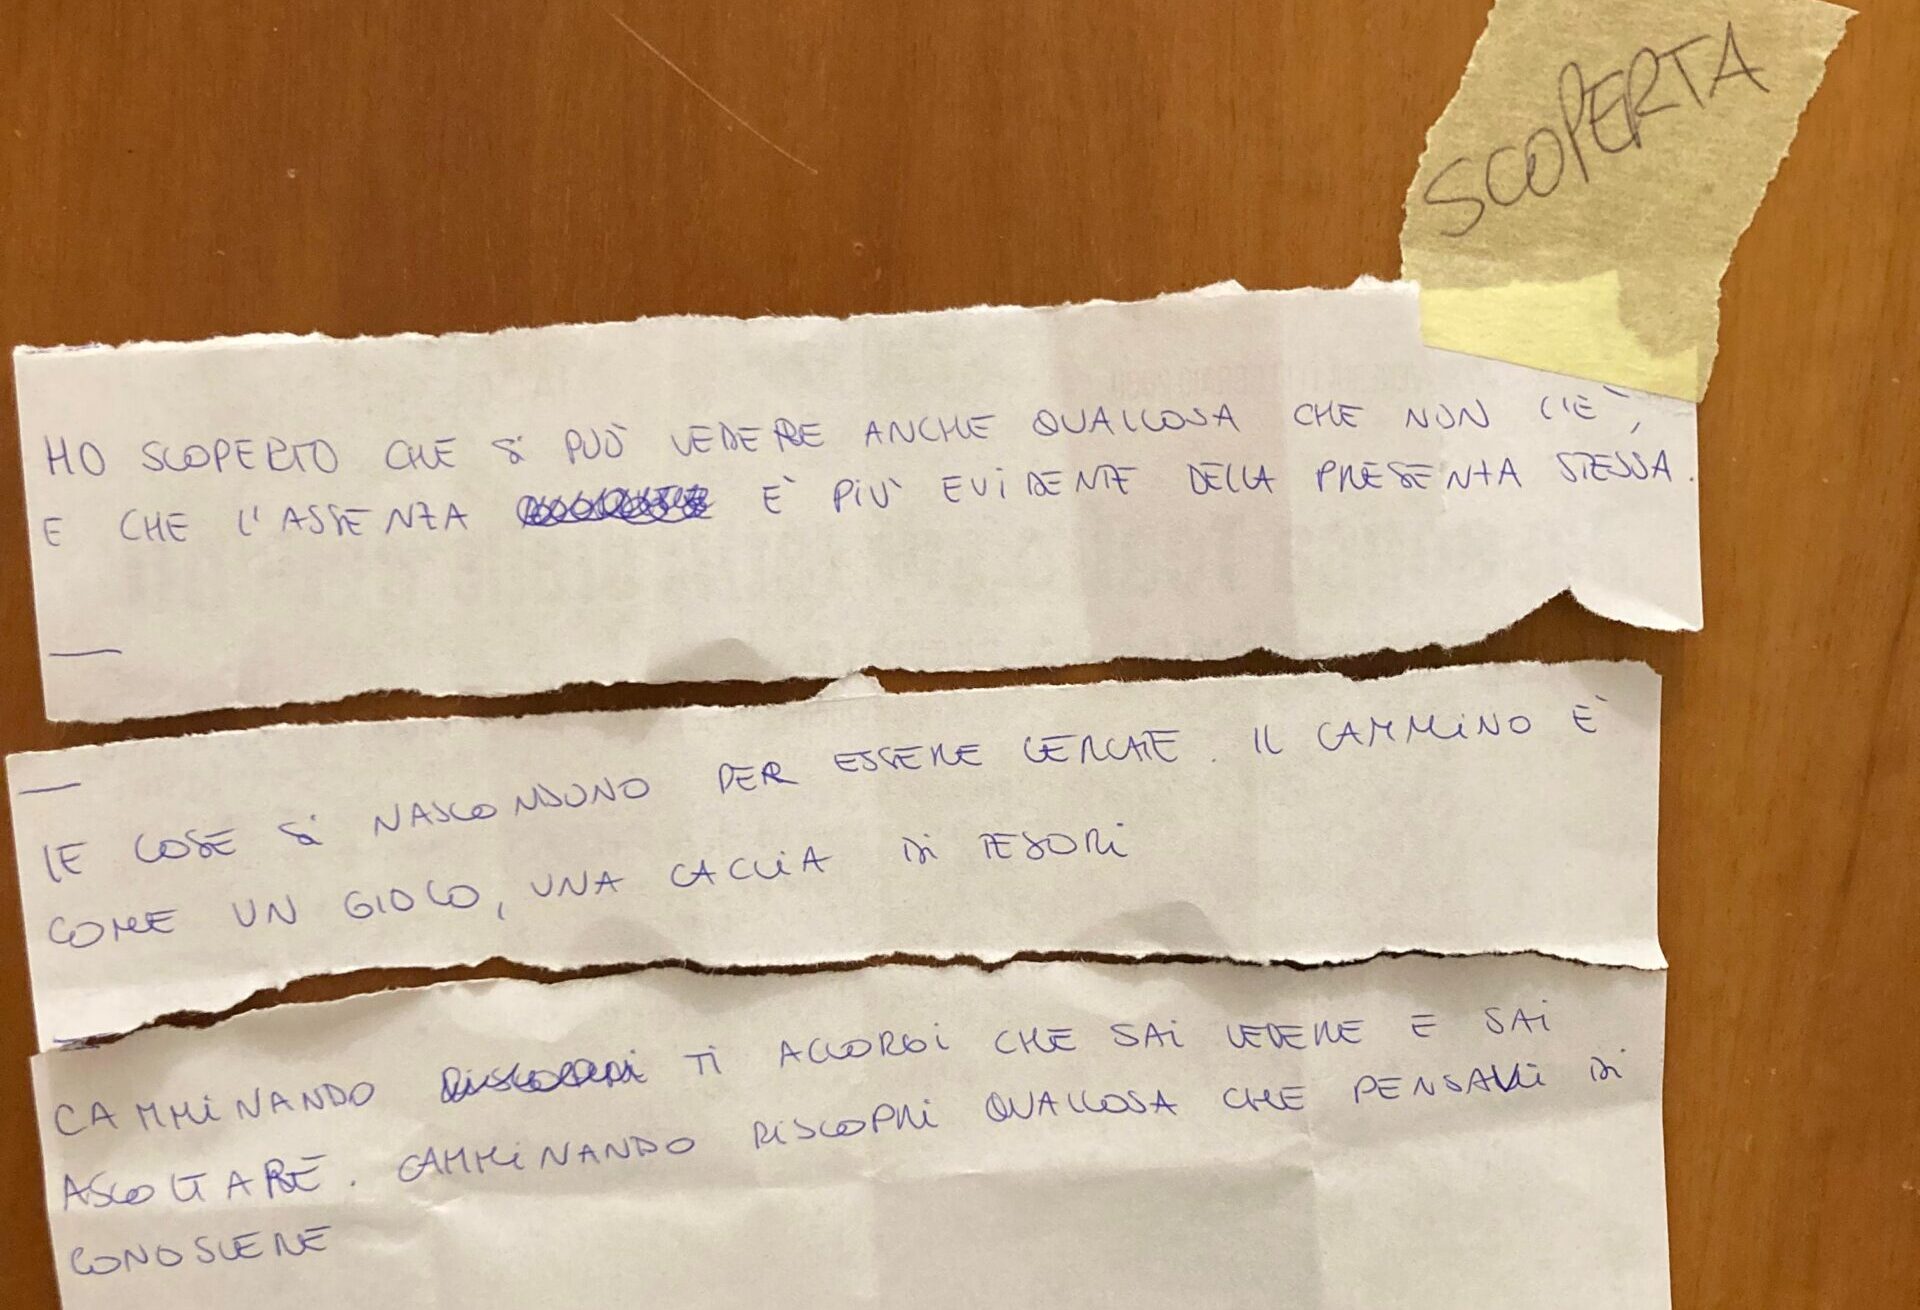 SCOPERTA
HO SCOPERTO CHE SI PUÒ VEDERE ANCHE QUALCOSA CHE NON C'È,
E CHE L'ASSENZA È PIÙ EVIDENTE DELLA PRESENZA STESSA.
LE COSE SI NASCONDONO PER ESSERE CERCATE. IL CAMMINO È
COME UN GIOCO, UNA CACCIA DI TESORI
CAMMINANDO TI ACCORGI CHE SAI VEDERE E SAI
ASCOLTARE. CAMMINANDO RISCOPRI QUALCOSA CHE PENSAVI DI
CONOSCERE